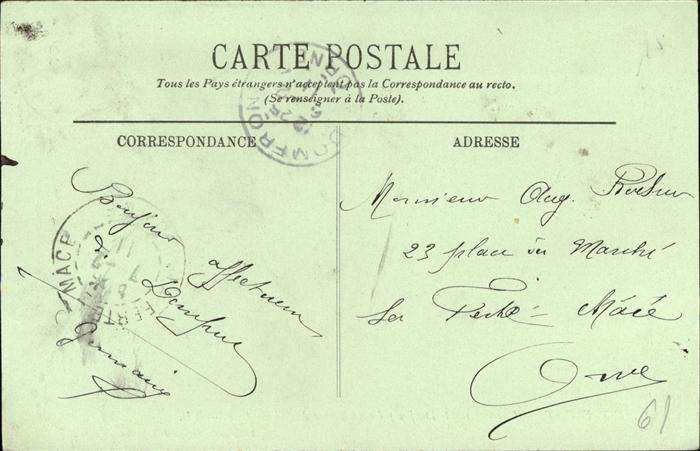 CARTE POSTALE
Tous les Pays étrangers n'acceptent pas la Correspondance au recto.
(Se renseigner à la Poste).
CORRESPONDANCE
ADRESSE
Bonjour
affectueux
de
Monsieur Aug.
23 place du Marché
La Ferté-Macé
Orne
61
DOMFRONT
ORNE
MACÉ